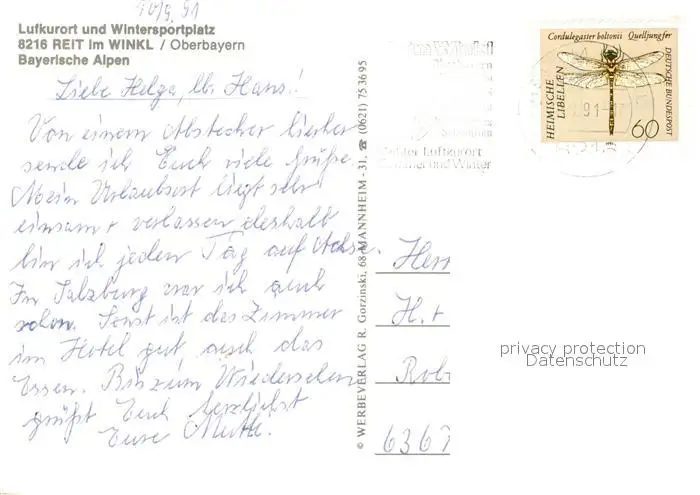 10/9.91
Lufkurort und Wintersportplatz
8216 REIT im WINKL / Oberbayern
Bayerische Alpen
Liebe Helga, lb. Hans!
Von einem Abstecher hierher
sende ich Euch viele Grüße.
Mein Urlaubsort liegt sehr
einsam + verlassen deshalb
bin ich jeden Tag auf Achse.
In Salzburg war ich auch
schon. Sonst ist das Zimmer
im Hotel gut auch das
Essen. Bis zum Wiedersehen
grüßt Euch herzlichst
Eure
© WERBEVERLAG R. Gorzinski, 68 MANNHEIM - 31, ☎ (0621) 753695
Luftkurort
und Winter
Cordulegaster boltonii Quelljungfer
HEIMISCHE
LIBELLEN
DEUTSCHE BUNDESPOST
60
91
Herr
H. +
Rob
6367
privacy protection
Datenschutz